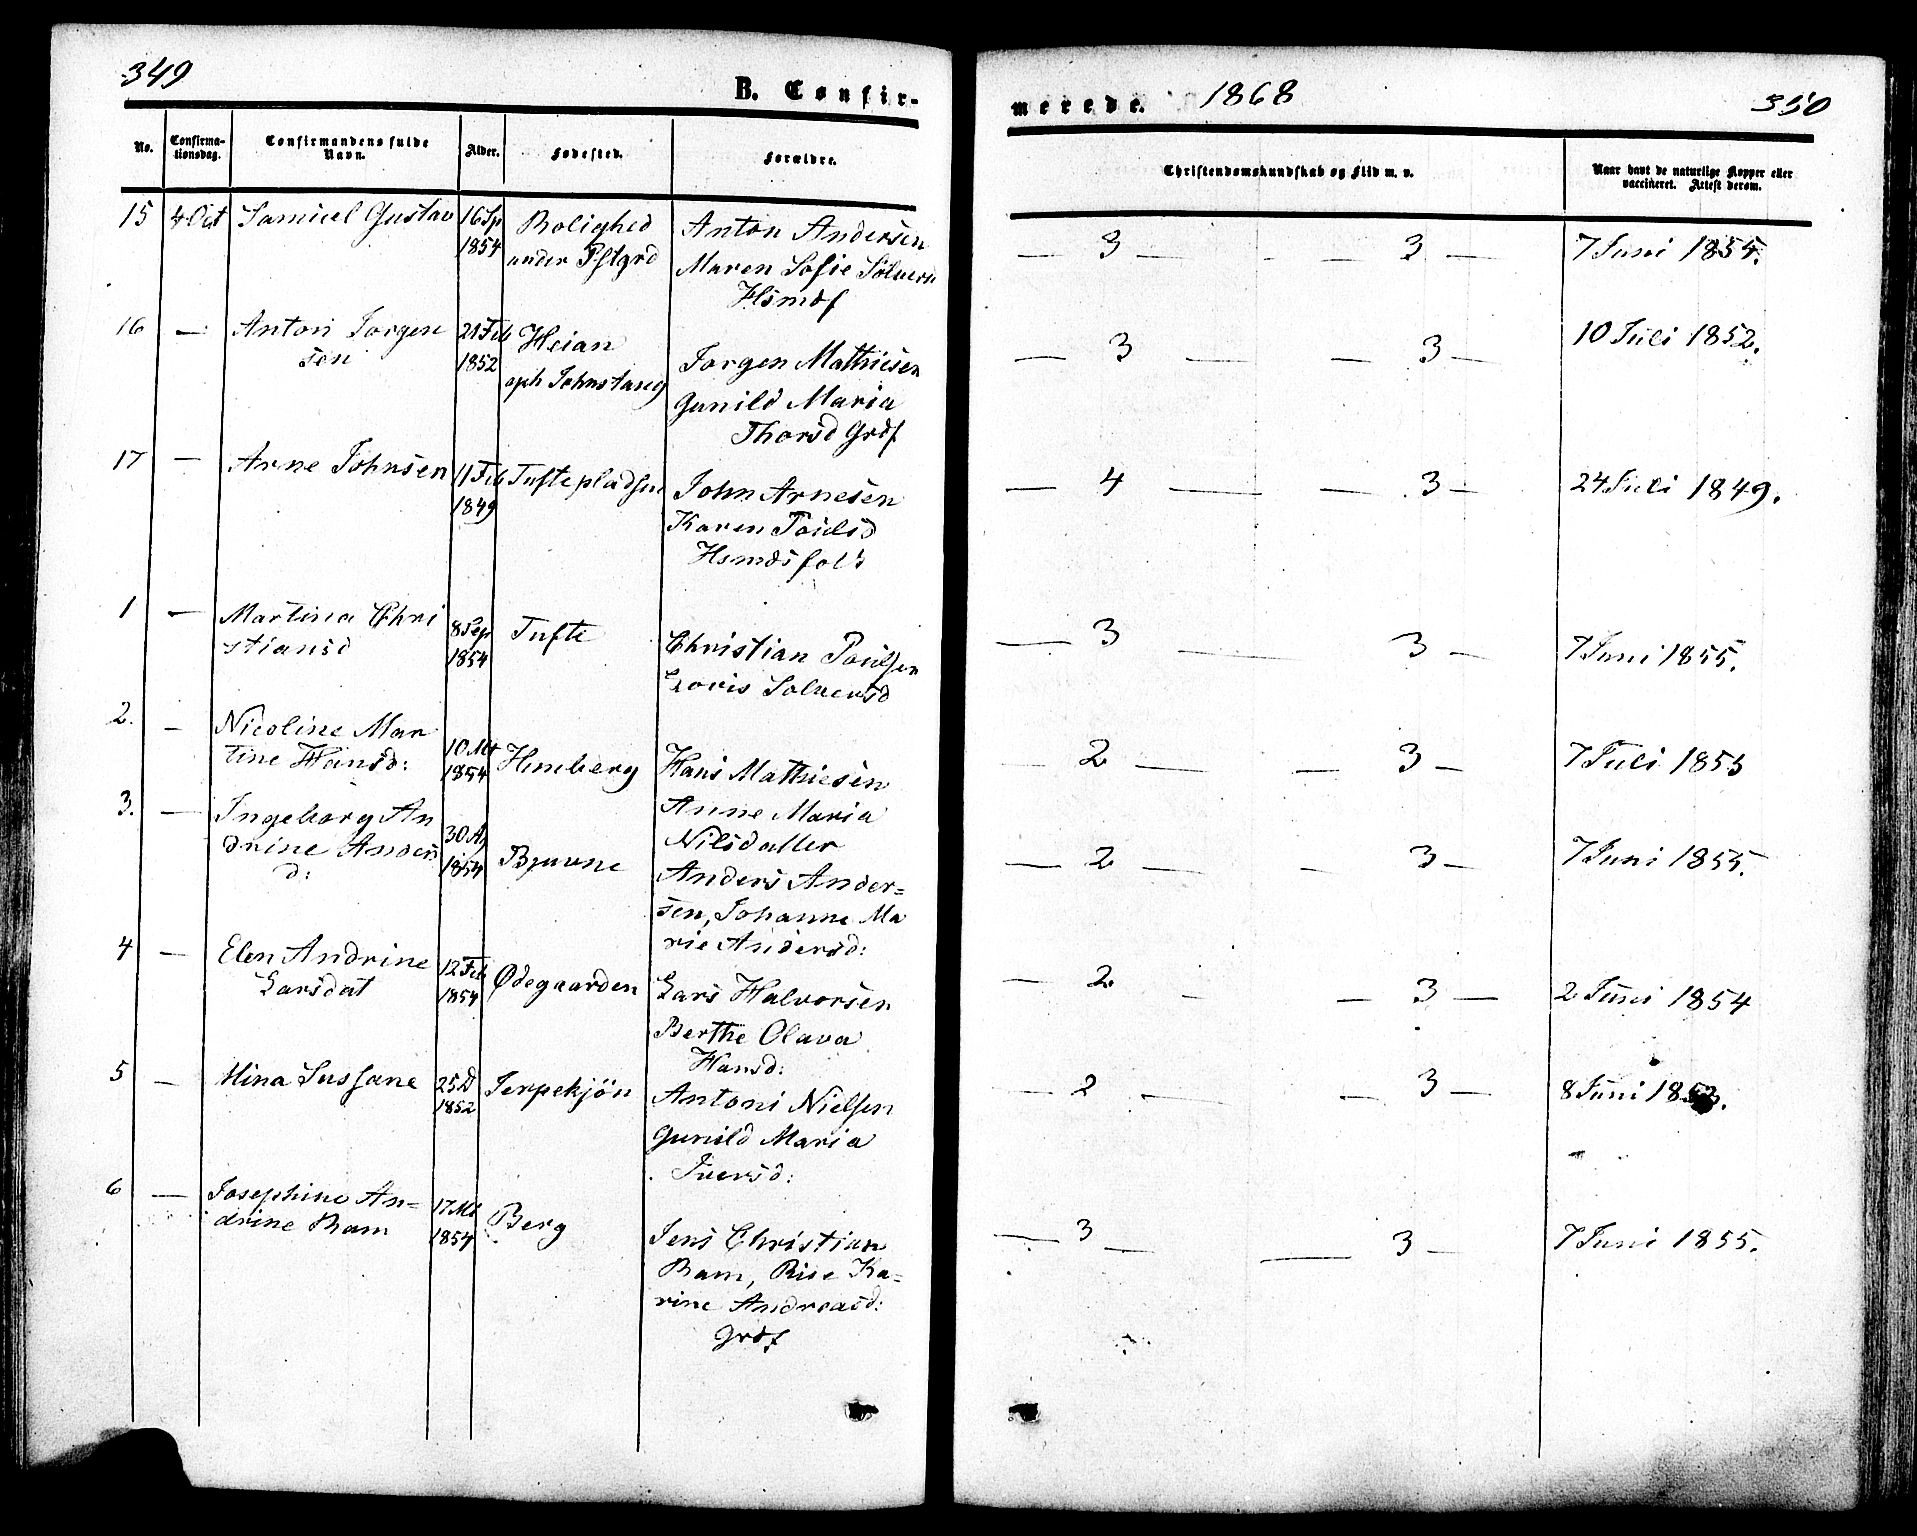 349
B. Confir-
No.
Confirma-
tionsdag.
Confirmandens fulde
Navn.
Alder.
Fødested.
Forældre.
15 4 Oct Samuel Gustav 16 Sp Bolighed Anton Andersen
1854 under Pstgrd Maren Sofie Solvers
Hsmdf
16 — Anton Jorgen 21 Feb Heian
sen 1852 oph Johnstang Jorgen Mathiesen
Gunild Maria
Thorsd Grdf
17 — Arne Johnsen 11 Feb Tuftepladsen John Arnesen
1849 Karen Poulsd
Hsmdsfolk
1 — Martina Chri 8 Sep Tufte
stiansd 1854 Christian Poulsen
Lovis Solversd
2. — Nicoline Mar
tine Hansd: 10 Mt Humberg Hans Mathiesen
1854 Anne Maria
Nilsdatter
3. — Ingeborg An
drine Anders 30 Ap Bruune Anders Ander=
d: 1854 sen, Johanne Ma
rie Andersd:
4 — Elen Andrine 12 Feb Ødegaarden Lars Halvorsen
Larsdat 1854 Berthe Olava
Hansd:
5 — Mina Sussane 25 D Jerpekjøn Antoni Nielsen
1852 Gunild Maria
Iversd:
6 — Josephine An=
drine Bam 17 Mt Berg Jens Christian
1854 Bam, Rise Ka=
rine Andreasd:
Grdf
merede. 1868 350
Christendomskundskab og Flid m. v.
Naar havt de naturlige Kopper eller
vaccineret. Attest derom.
— 3 — - — 3 — 7 Juni 1855.
— 3 — — 3 — 10 Juli 1852.
— 4 — — 3 — 24 Juli 1849.
— 3 — 3 — 7 Juni 1855.
— 2 — — 3 — 7 Juli 1855
— 2 — - 3 — 7 Juni 1855.
— 2 - — 3 — 2 Juni 1854
— 2 — — 3 — 8 Juni 1853.
— 3 — — 3 — 7 Juni 1855.